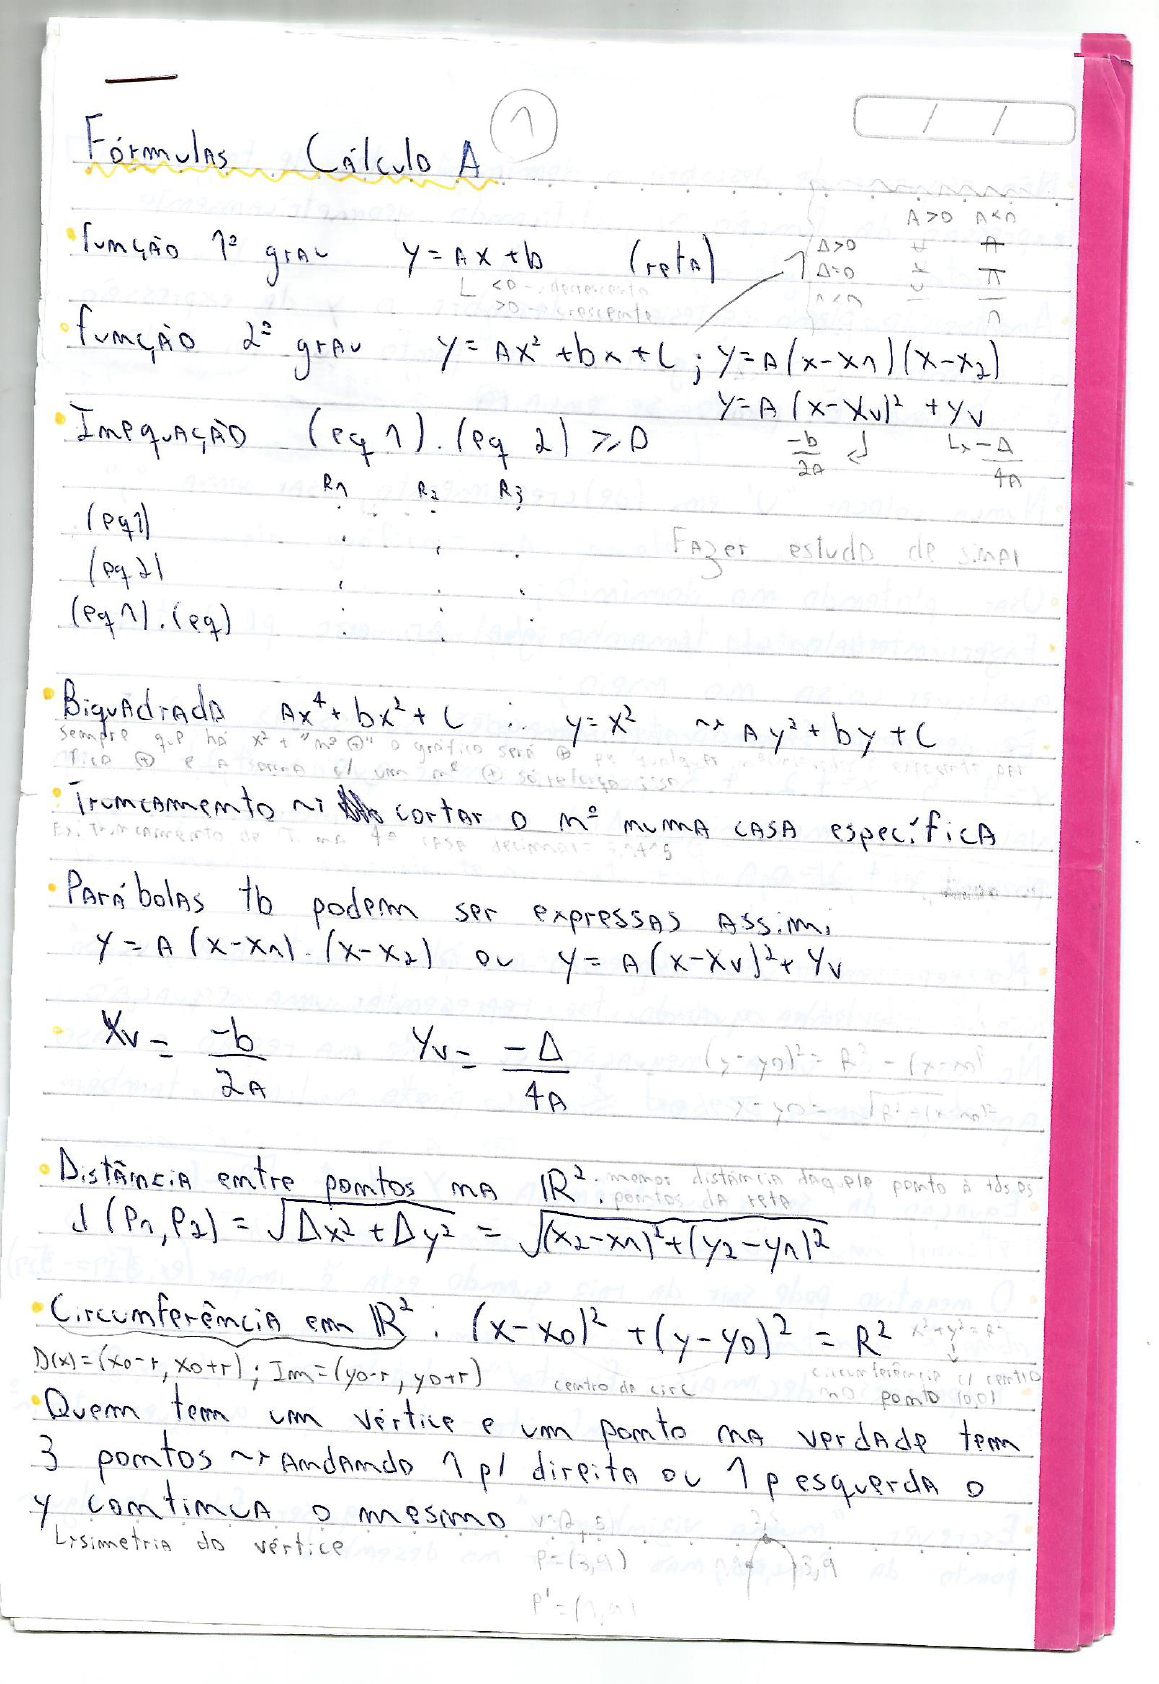 1
Fórmulas Cálculo A
/ /
A>0 A<0
Δ>0
Δ=0
Δ<0
função 1º grau y=Ax+b (reta)
<0 → decrescente
>0 → crescente
função 2º grau y=Ax²+bx+C ; y=A(x-x1)(x-x2)
y=A(x-xv)²+yv
-b/2A ↲ ↳ -Δ/4A
Inequação (eq 1).(eq 2) ≥ 0
R1 R2 R3
(eq1)
Fazer estudo de sinal
(eq2)
(eq1).(eq)
Biquadrada Ax⁴+bx²+C : y=x² ~> Ay²+by+C
sempre que há x² + "nº ⊕" o gráfico será ⊕ pq qualquer
fica ⊕ e a soma c/ um nº ⊕ só reforça isso
Truncamento ~> cortar o nº numa casa específica
Ex: truncamento de π na 4ª casa decimal =
Parábolas tb podem ser expressas assim:
y=A(x-x1).(x-x2) ou y=A(x-xv)²+yv
Xv = -b/2A Yv = -Δ/4A
(y-y0)²=R²-(x-x0)²
Distância entre pontos na ℝ². menor distância daquele ponto à tds os
pontos da reta
d(P1,P2)=√Δx²+Δy² = √(x2-x1)²+(y2-y1)²
Circunferência em ℝ²: (x-x0)²+(y-y0)²=R² x²+y²=R²
D(x)=(x0-r, x0+r); Im=(y0-r, y0+r) centro da circ circunferência c/ centro
no ponto (0,0)
Quem tem um vértice e um ponto na verdade tem
3 pontos ~> Andando 1 p/ direita ou 1 p esquerda o
y continua o mesmo
↳simetria do vértice
V=(2,5)
P=(3,9) 3,9
P'=(1,9)